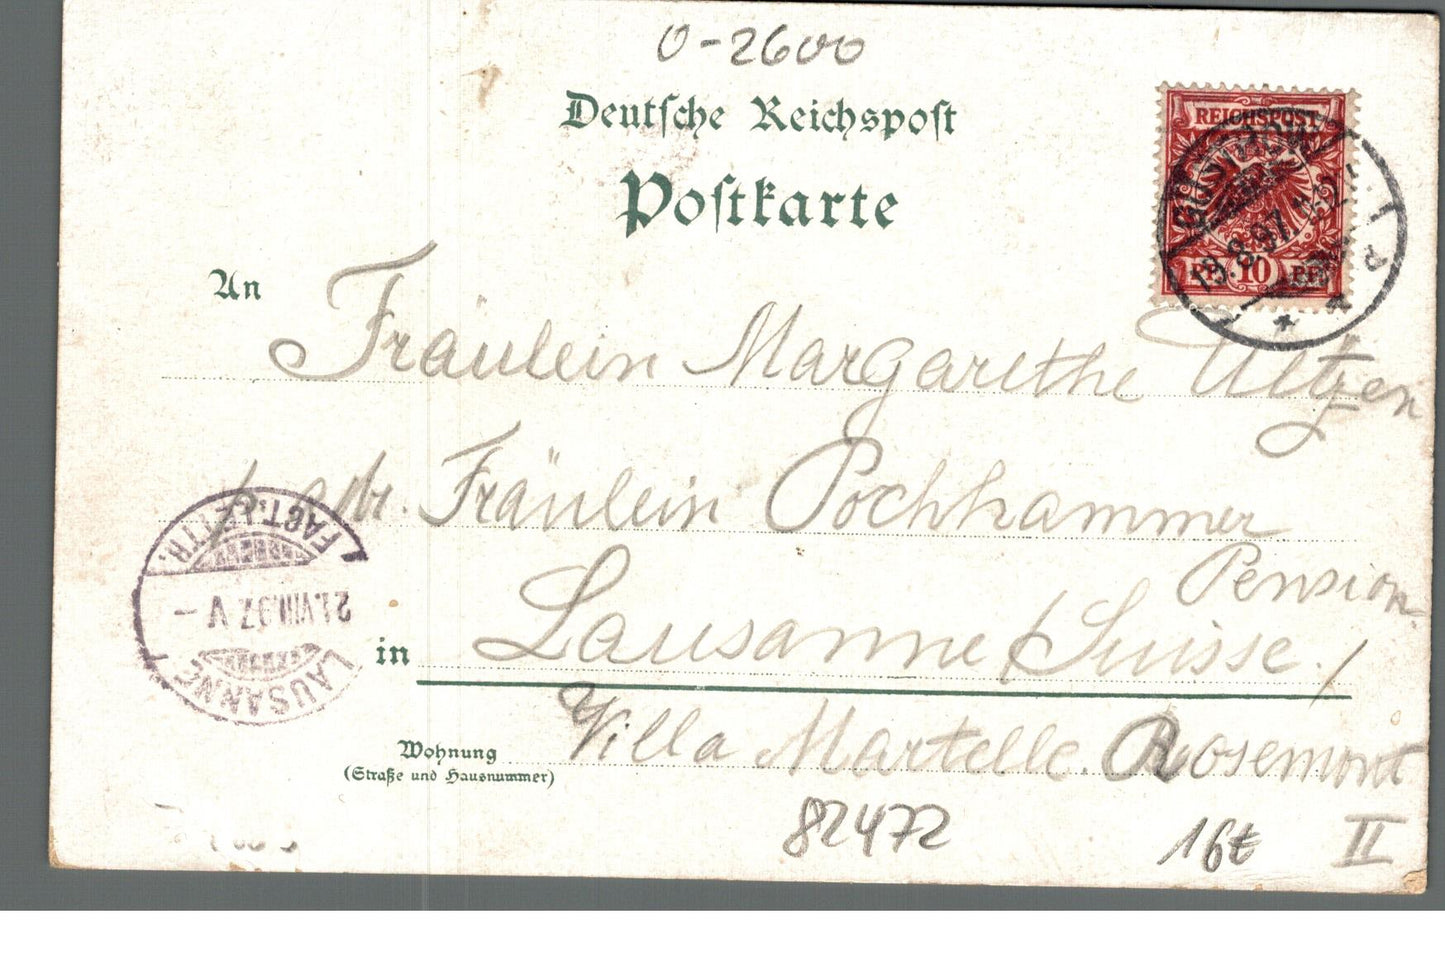 0-2600
Deutsche Reichspost
Postkarte
REICHSPOST
GÜSTROW
19.8.97.
PF. 10 PF.
An
Fräulein Margarethe Ultzen
adr. Fräulein Pochhammer
Pension
in Lausanne /Suisse./
Wohnung
(Straße und Hausnummer)
Villa Martelle. Rosemont
82472
16t
II
FACT. LETTR.
21.VIII.97. V –
LAUSANNE